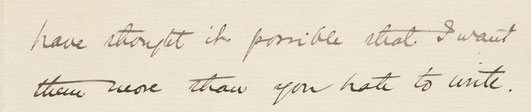 have thought it possible that I want
them more than you hate to write.